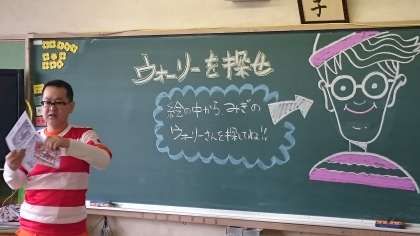 子
ウォーリーを探せ
絵の中から、みぎの
ウォーリーさんを探してね!!